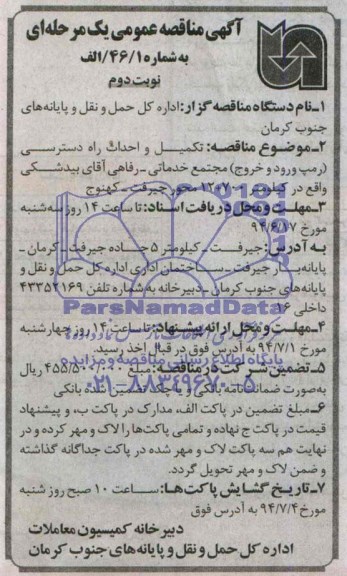 آگهی مناقصه عمومی یک مرحله‌ای
به شماره ۴۶/۱/الف
نوبت دوم
۱ـ نام دستگاه مناقصه گزار: اداره کل حمل و نقل و پایانه‌های
جنوب کرمان
۲ـ موضوع مناقصه: تکمیل و احداث راه دسترسی
(رمپ ورود و خروج) مجتمع خدماتی ـ رفاهی آقای بیدشکی
واقع در کیلومتر محور جیرفت ـ کهنوج
۳ـ مهلت و محل دریافت اسناد: تا ساعت ۱۴ روز سه شنبه
مورخ ۹۴/۶/۱۷
به آدرس: جیرفت ـ کیلومتر ۵ جاده جیرفت ـ کرمان ـ
پایانه بار جیرفت ـ ساختمان اداری اداره کل حمل و نقل و
پایانه‌های جنوب کرمان ـ دبیرخانه به شماره تلفن ۴۳۳۵۲۱۶۹
داخلی ۱۶
ParsNamadData
۴ـ مهلت و محل ارائه پیشنهاد: تا ساعت ۱۴ روز چهارشنبه
مورخ ۹۴/۷/۱ به آدرس فوق در قبال اخذ رسید.
پایگاه اطلاع رسانی مناقصه و مزایده
۵ـ تضمین شرکت در مناقصه: مبلغ ۴۵۵/۵۰۰/۰۰۰ ریال
۰۲۱-۸۸۳۴۹۶۷۰-۵
به صورت ضمانتنامه بانکی و یا چک تضمین شده بانکی
۶ـ مبلغ تضمین در پاکت الف، مدارک در پاکت ب، و پیشنهاد
قیمت در پاکت ج نهاده و تمامی پاکت‌ها را لاک و مهر کرده و در
نهایت هم سه پاکت لاک و مهر شده در پاکت جداگانه گذاشته
و ضمن لاک و مهر تحویل گردد.
۷ـ تاریخ گشایش پاکت‌ها: ساعت ۱۰ صبح روز شنبه
مورخ ۹۴/۷/۴ به آدرس فوق
دبیرخانه کمیسیون معاملات
اداره کل حمل و نقل و پایانه‌های جنوب کرمان